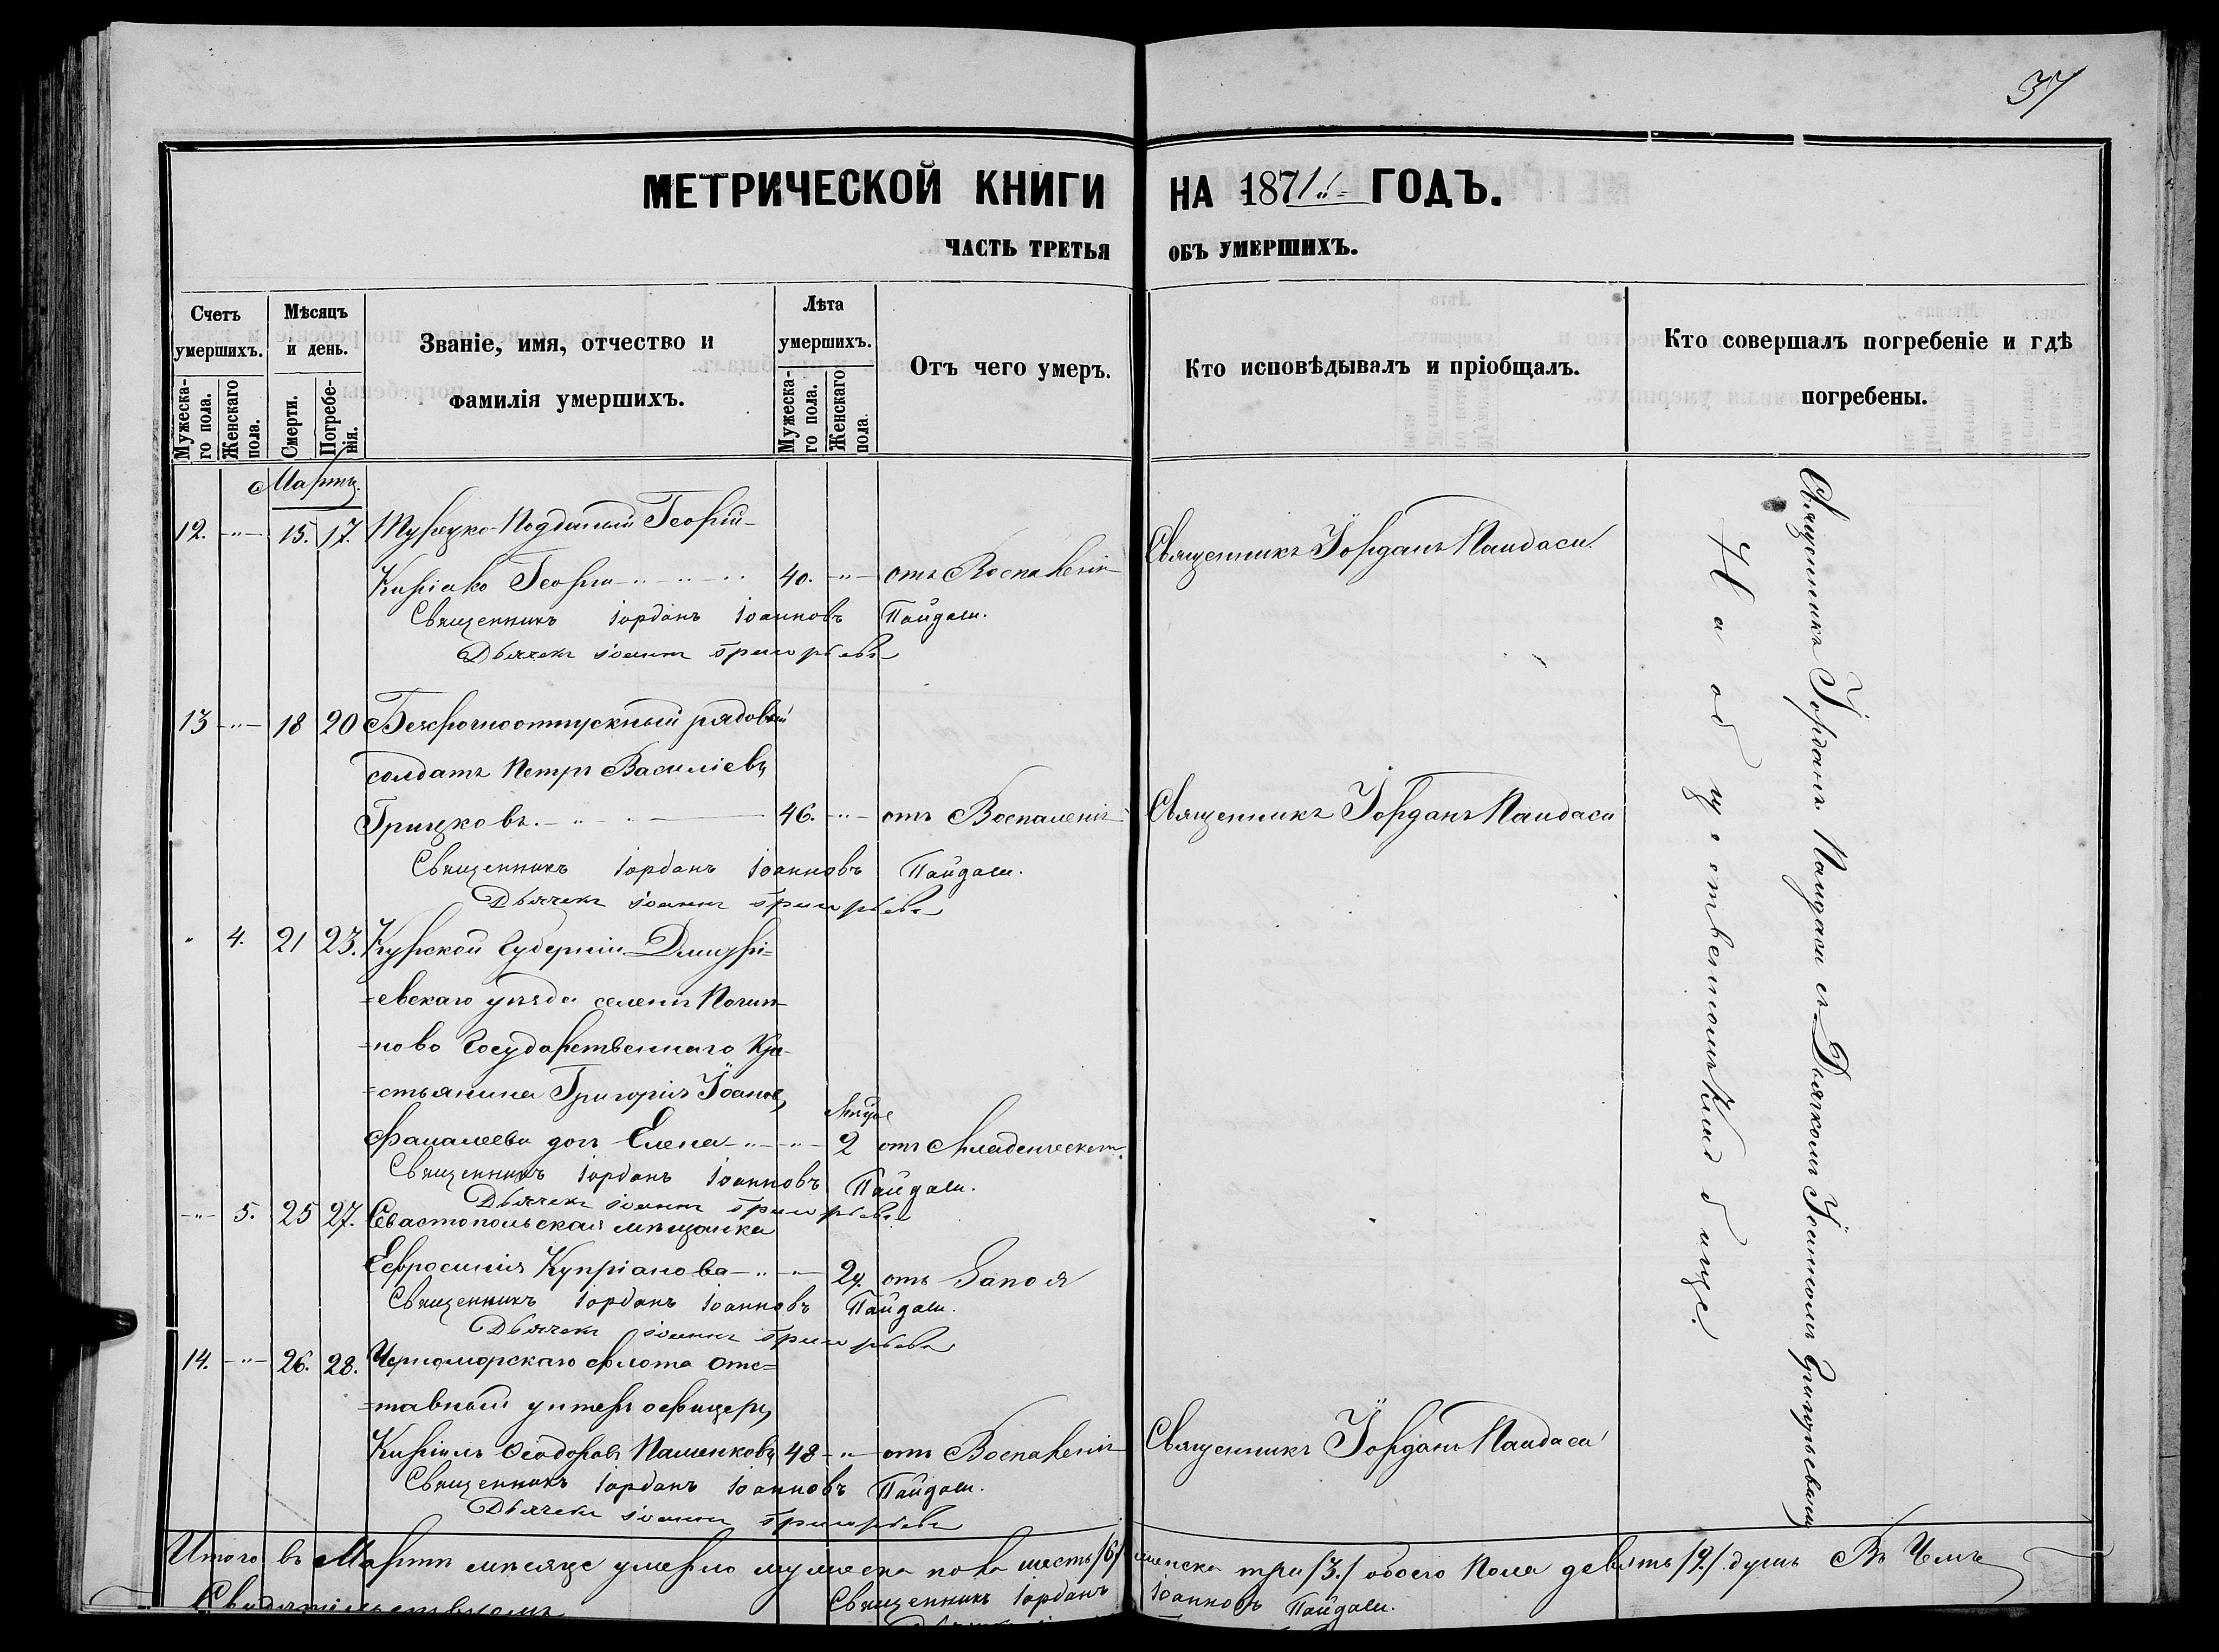 37
МЕТРИЧЕСКОЙ КНИГИ НА 1871 ГОДЪ.
ЧАСТЬ ТРЕТЬЯ ОБЪ УМЕРШИХЪ.
Счетъ умершихъ.
Мужескаго пола.
Женскаго пола.
Мѣсяцъ и день.
Смерти.
Погребенія.
Званіе, имя, отчество и
фамилія умершихъ.
Лѣта умершихъ.
Мужескаго пола.
Женскаго пола.
Отъ чего умеръ.
Кто исповѣдывалъ и пріобщалъ.
Кто совершалъ погребеніе и гдѣ
погребены.
Мартъ.
12. -"- 15. 17. Турецко-Подданый Георгій
Киріако Георгіи 40. -"- отъ Воспаленія Священникъ Іорданъ Паидаси
Священникъ Іорданъ Іоанновъ Пайдаси.
Дьячекъ Іоаннъ Григорьевъ
13 -"- 18 20 Безсрочноотпускный рядовый
солдатъ Петръ Василіевъ
Грицковъ. 46. -"- отъ Воспаленія Священникъ Іорданъ Паидаси
Священникъ Іорданъ Іоанновъ Пайдаси.
Дьячекъ Іоаннъ Григорьевъ
" 4. 21 23. Курской Губерніи Дмитрі=
=евскаго уѣзда селенія Погин-
=ново Государственнаго Кре-
=стьянина Григорія Іоанов,
дочь Елена 2 отъ Младенческой
Священникъ Іорданъ Іоанновъ Пайдаси.
Дьячекъ Іоаннъ Григорьевъ
-"- 5. 25 27. Севастопольская мѣщанка
Евфросинія Купріанова 29. отъ Запоя
Священникъ Іорданъ Іоанновъ Пайдаси.
Дьячекъ Іоаннъ Григорьевъ
14. -"- 26. 28. Черноморскаго флота отс=
=тавный унтеръ офицеръ,
Кирилъ Ѳеодоровъ Пашенковъ 48 -"- отъ Воспаленія Священникъ Іорданъ Паидаси
Священникъ Іорданъ Іоанновъ Пайдаси.
Дьячекъ Іоаннъ Григорьевъ
Священникъ Іорданъ Паидаси съ Дьячкомъ Іоанномъ Григорьевымъ
На общественномъ Кладбищѣ.
Итого въ Мартѣ мѣсяцѣ умерло мужеска пола шесть /6/ женска три /3./ обоего Пола девять /9./ душъ Въ Чемъ
Свидѣтельствуемъ Священникъ Іорданъ Іоанновъ Пайдаси.